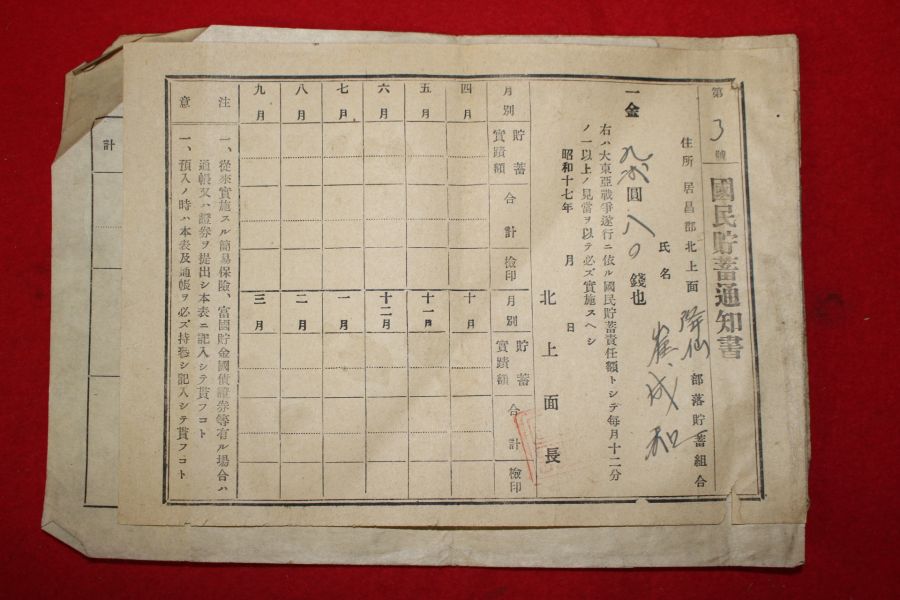 第 3 號
國民貯蓄通知書
住所 居昌郡北上面 降仙 部落貯蓄組合
氏名 崔成
一金 圓八〇錢也
右ハ大東亞戰爭遂行ニ依ル國民貯蓄責任額トシテ每月十二分
ノ一以上ノ見當ヲ以テ必ズ實施スヘシ
昭和十七年 月 日
北上面長
月別 貯蓄實蹟額 合計 檢印 月別 貯蓄實蹟額 合計 檢印
四月 十月
五月 十一月
六月 十二月
七月 一月
八月 二月
九月 三月
注意
一、從來實施スル簡易保險、富國貯金國債證券等有ル場合ハ
通帳又ハ證券ヲ提出シ本表ニ記入シテ貰フコト
一、預入ノ時ハ本表及通帳ヲ必ズ持參シ記入シテ貰フコト
計